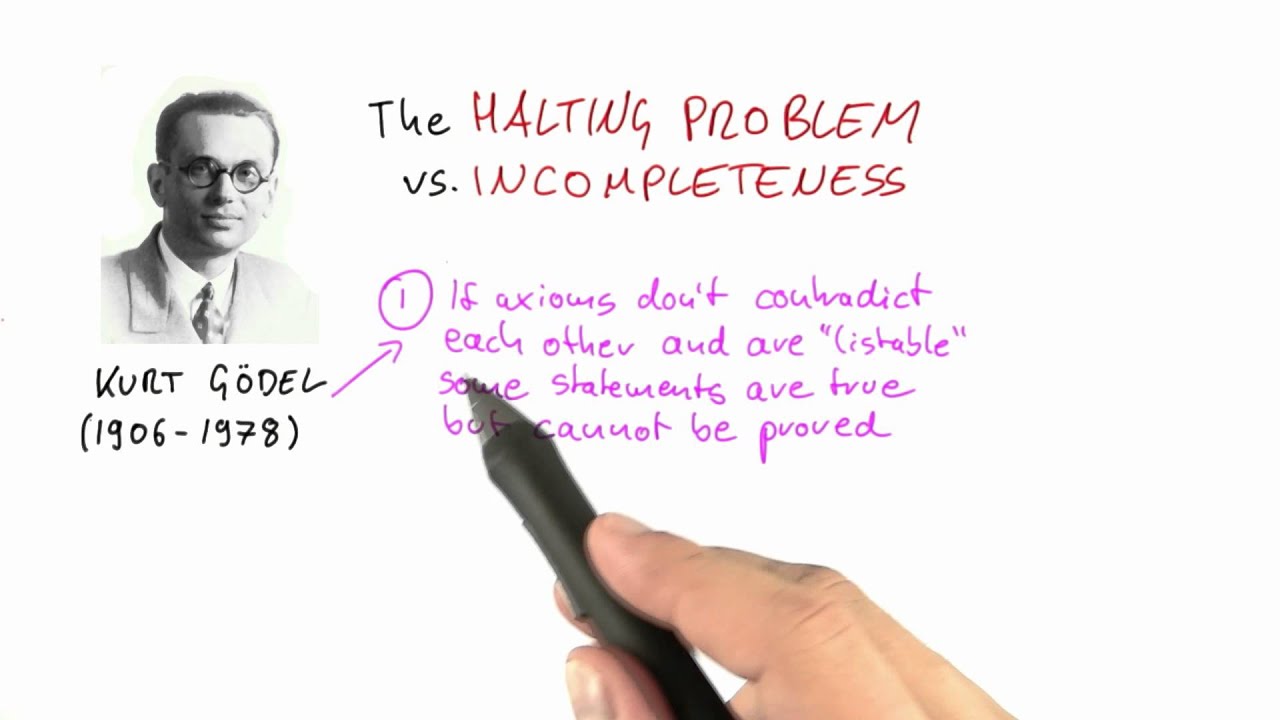 The HALTING PROBLEM
vs. INCOMPLETENESS
KURT GÖDEL
(1906-1978)
1 If axioms don't contradict
each other and are "listable"
some statements are true
but cannot be proved